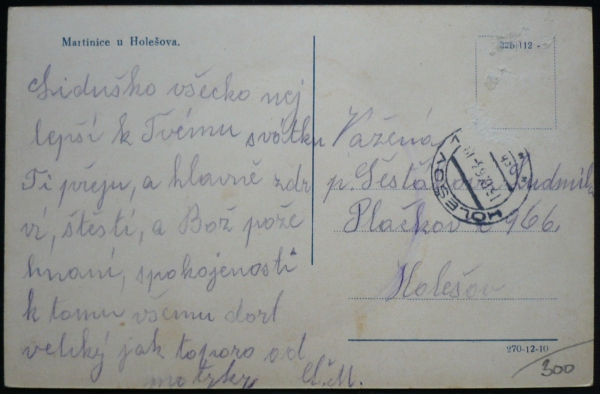 Martinice u Holešova.
22b-112
Liduško všecko nej
lepší k Tvému svátku
Ti přeju, a hlavně zdr
ví, štěstí, a Boz pože
hnaní, spokojenosti
k tomu všemu dort
velký jak toporo od
motyky Š.M.
Vážená
p. Šestáková Ludmila
Plačkov č 966
Holešov
HOLEŠOV
270-12-10
300